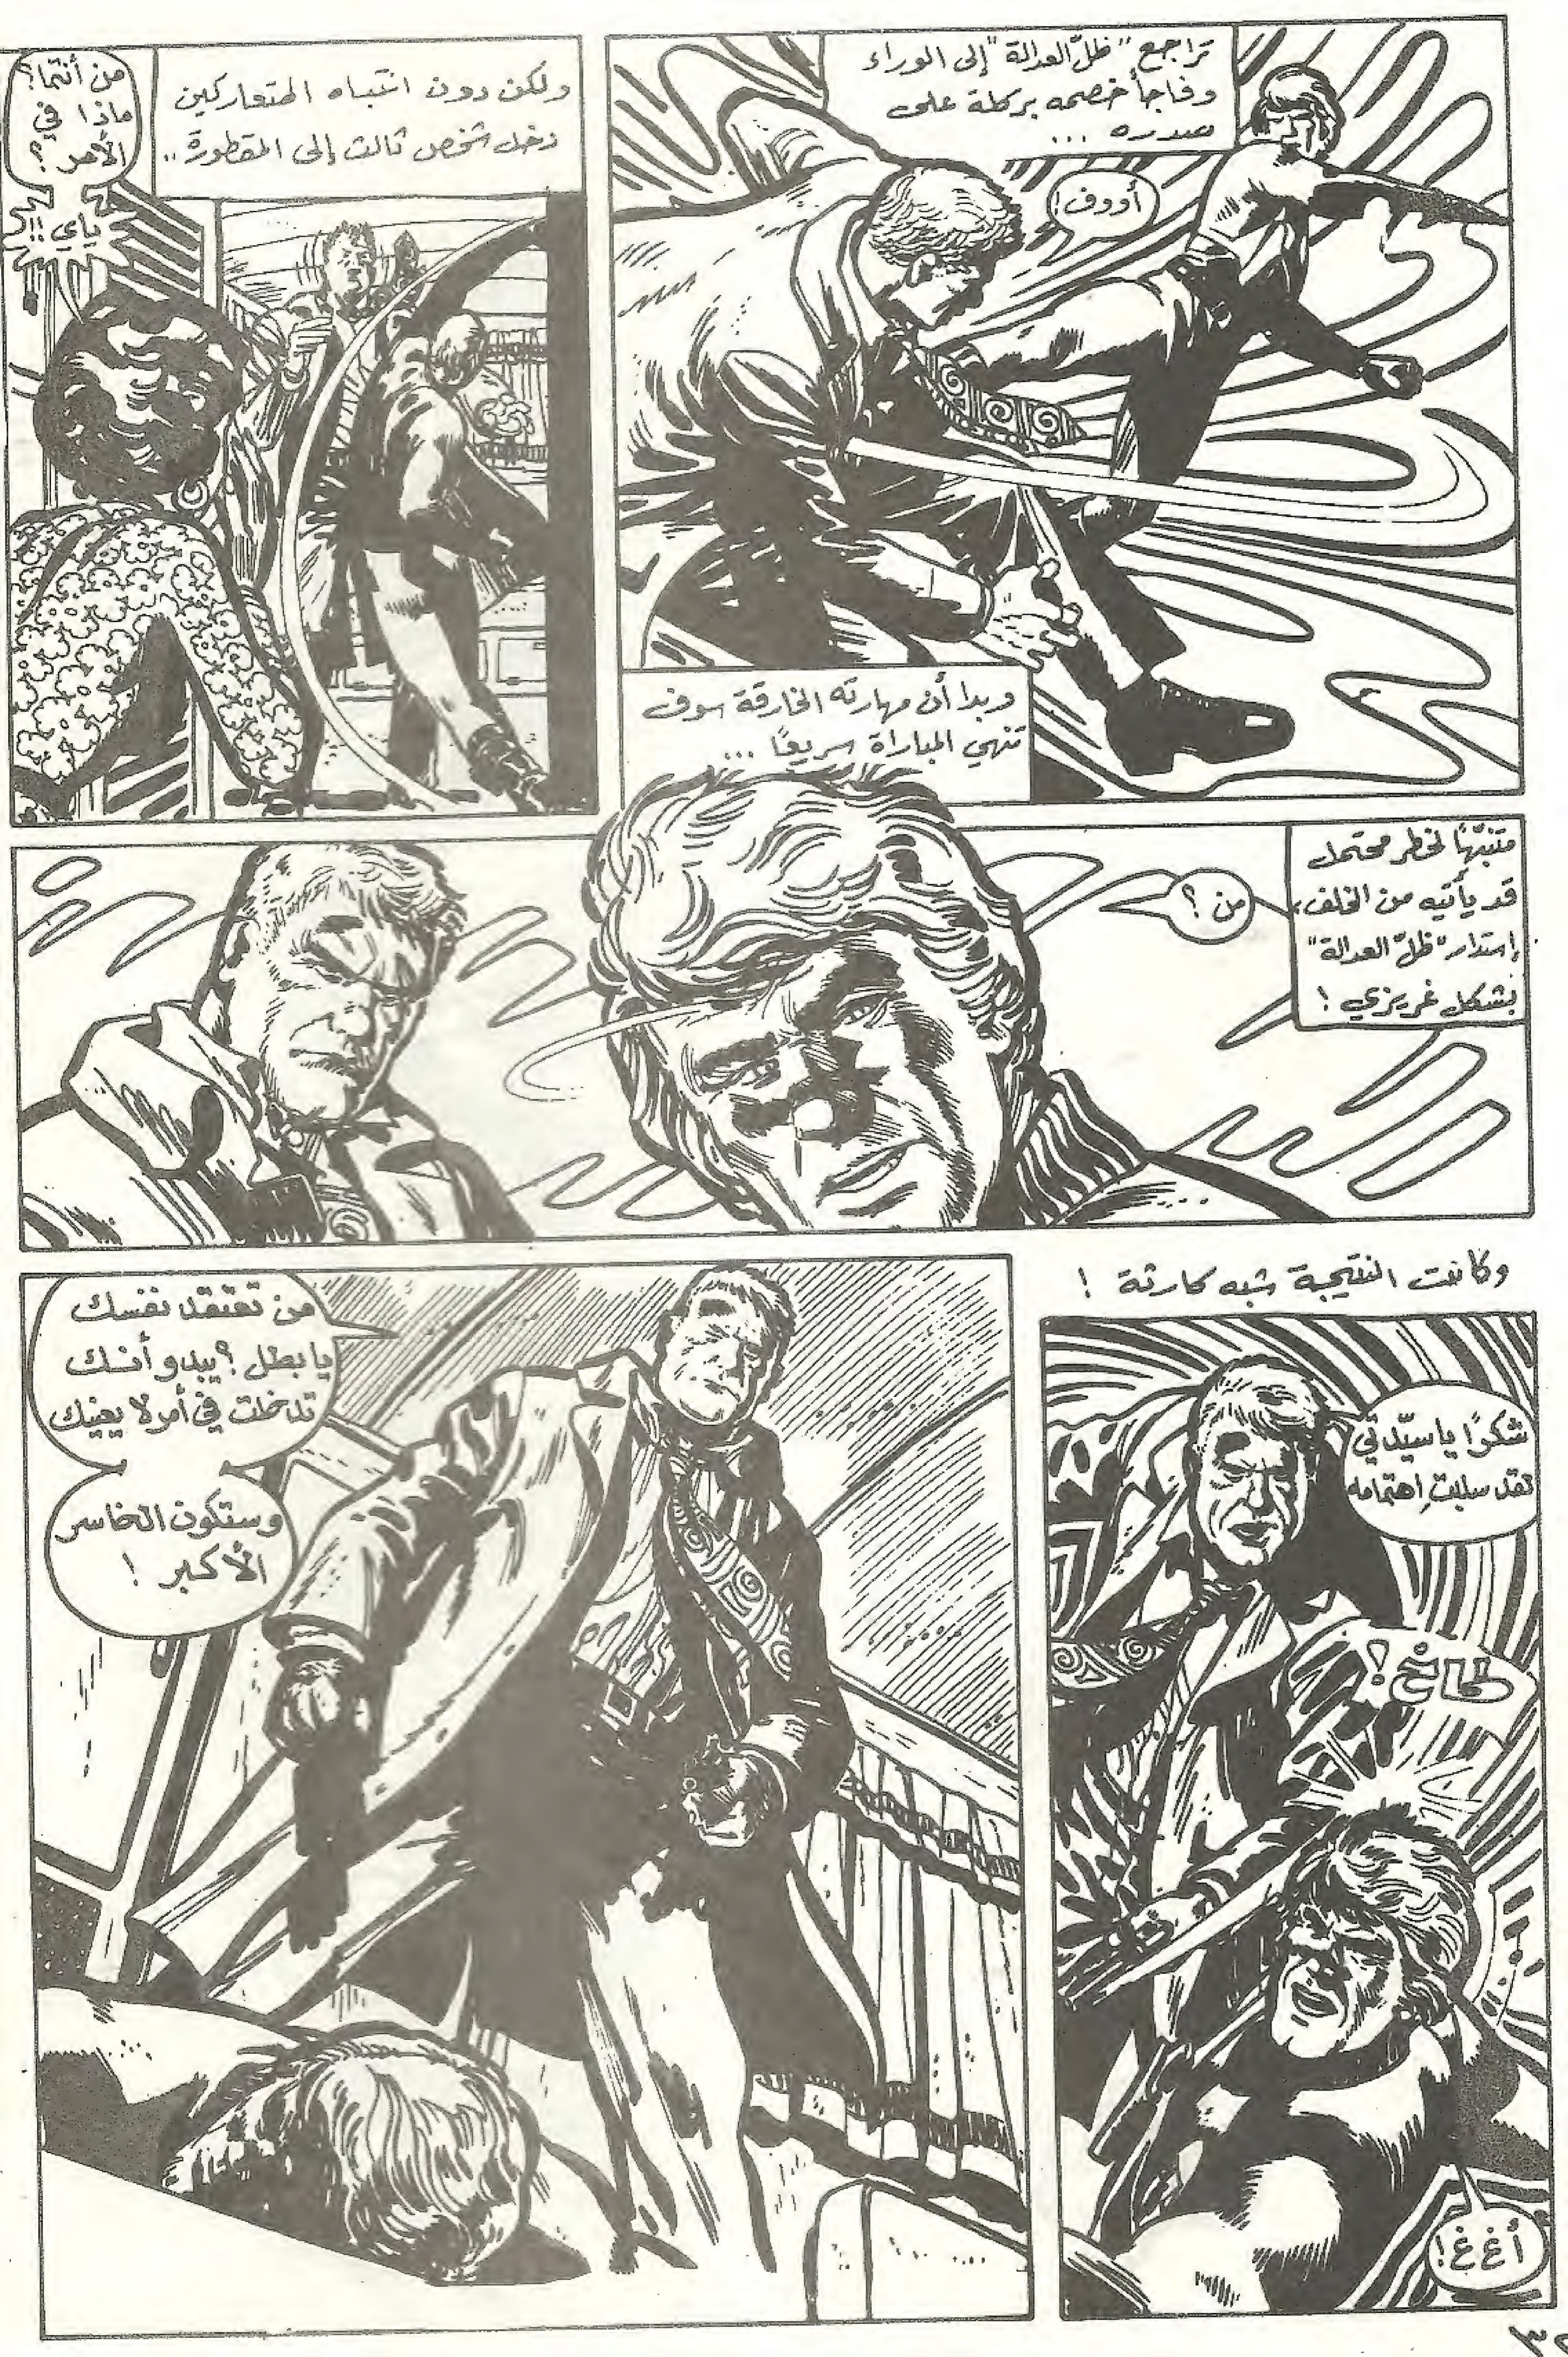 تراجع "ظلّ العدالة" إلى الوراء
وفاجأ خصمه بركلة على
صدره ...
أووف!
وبدا أن مهارته الخارقة سوف
تنهي المباراة سريعًا ...
ولكن دون انتباه المتعاركين
دخل شخص ثالث إلى المقطورة..
من أنتما؟
ماذا في
الأمر؟
ياي!!
متنبّهًا لخطر محتمل
قد يأتيه من الخلف،
إستدار "ظلّ العدالة"
بشكل غريزي!
من؟
وكانت النتيجة شبه كارثة!
شكرًا يا سيّدتي
لقد سلبتِ اهتمامه
طاخ!
أغ غ!
من تعتقد نفسك
يا بطل؟ يبدو أنك
تدخلت في أمر لا يعنيك
وستكون الخاسر
الأكبر!